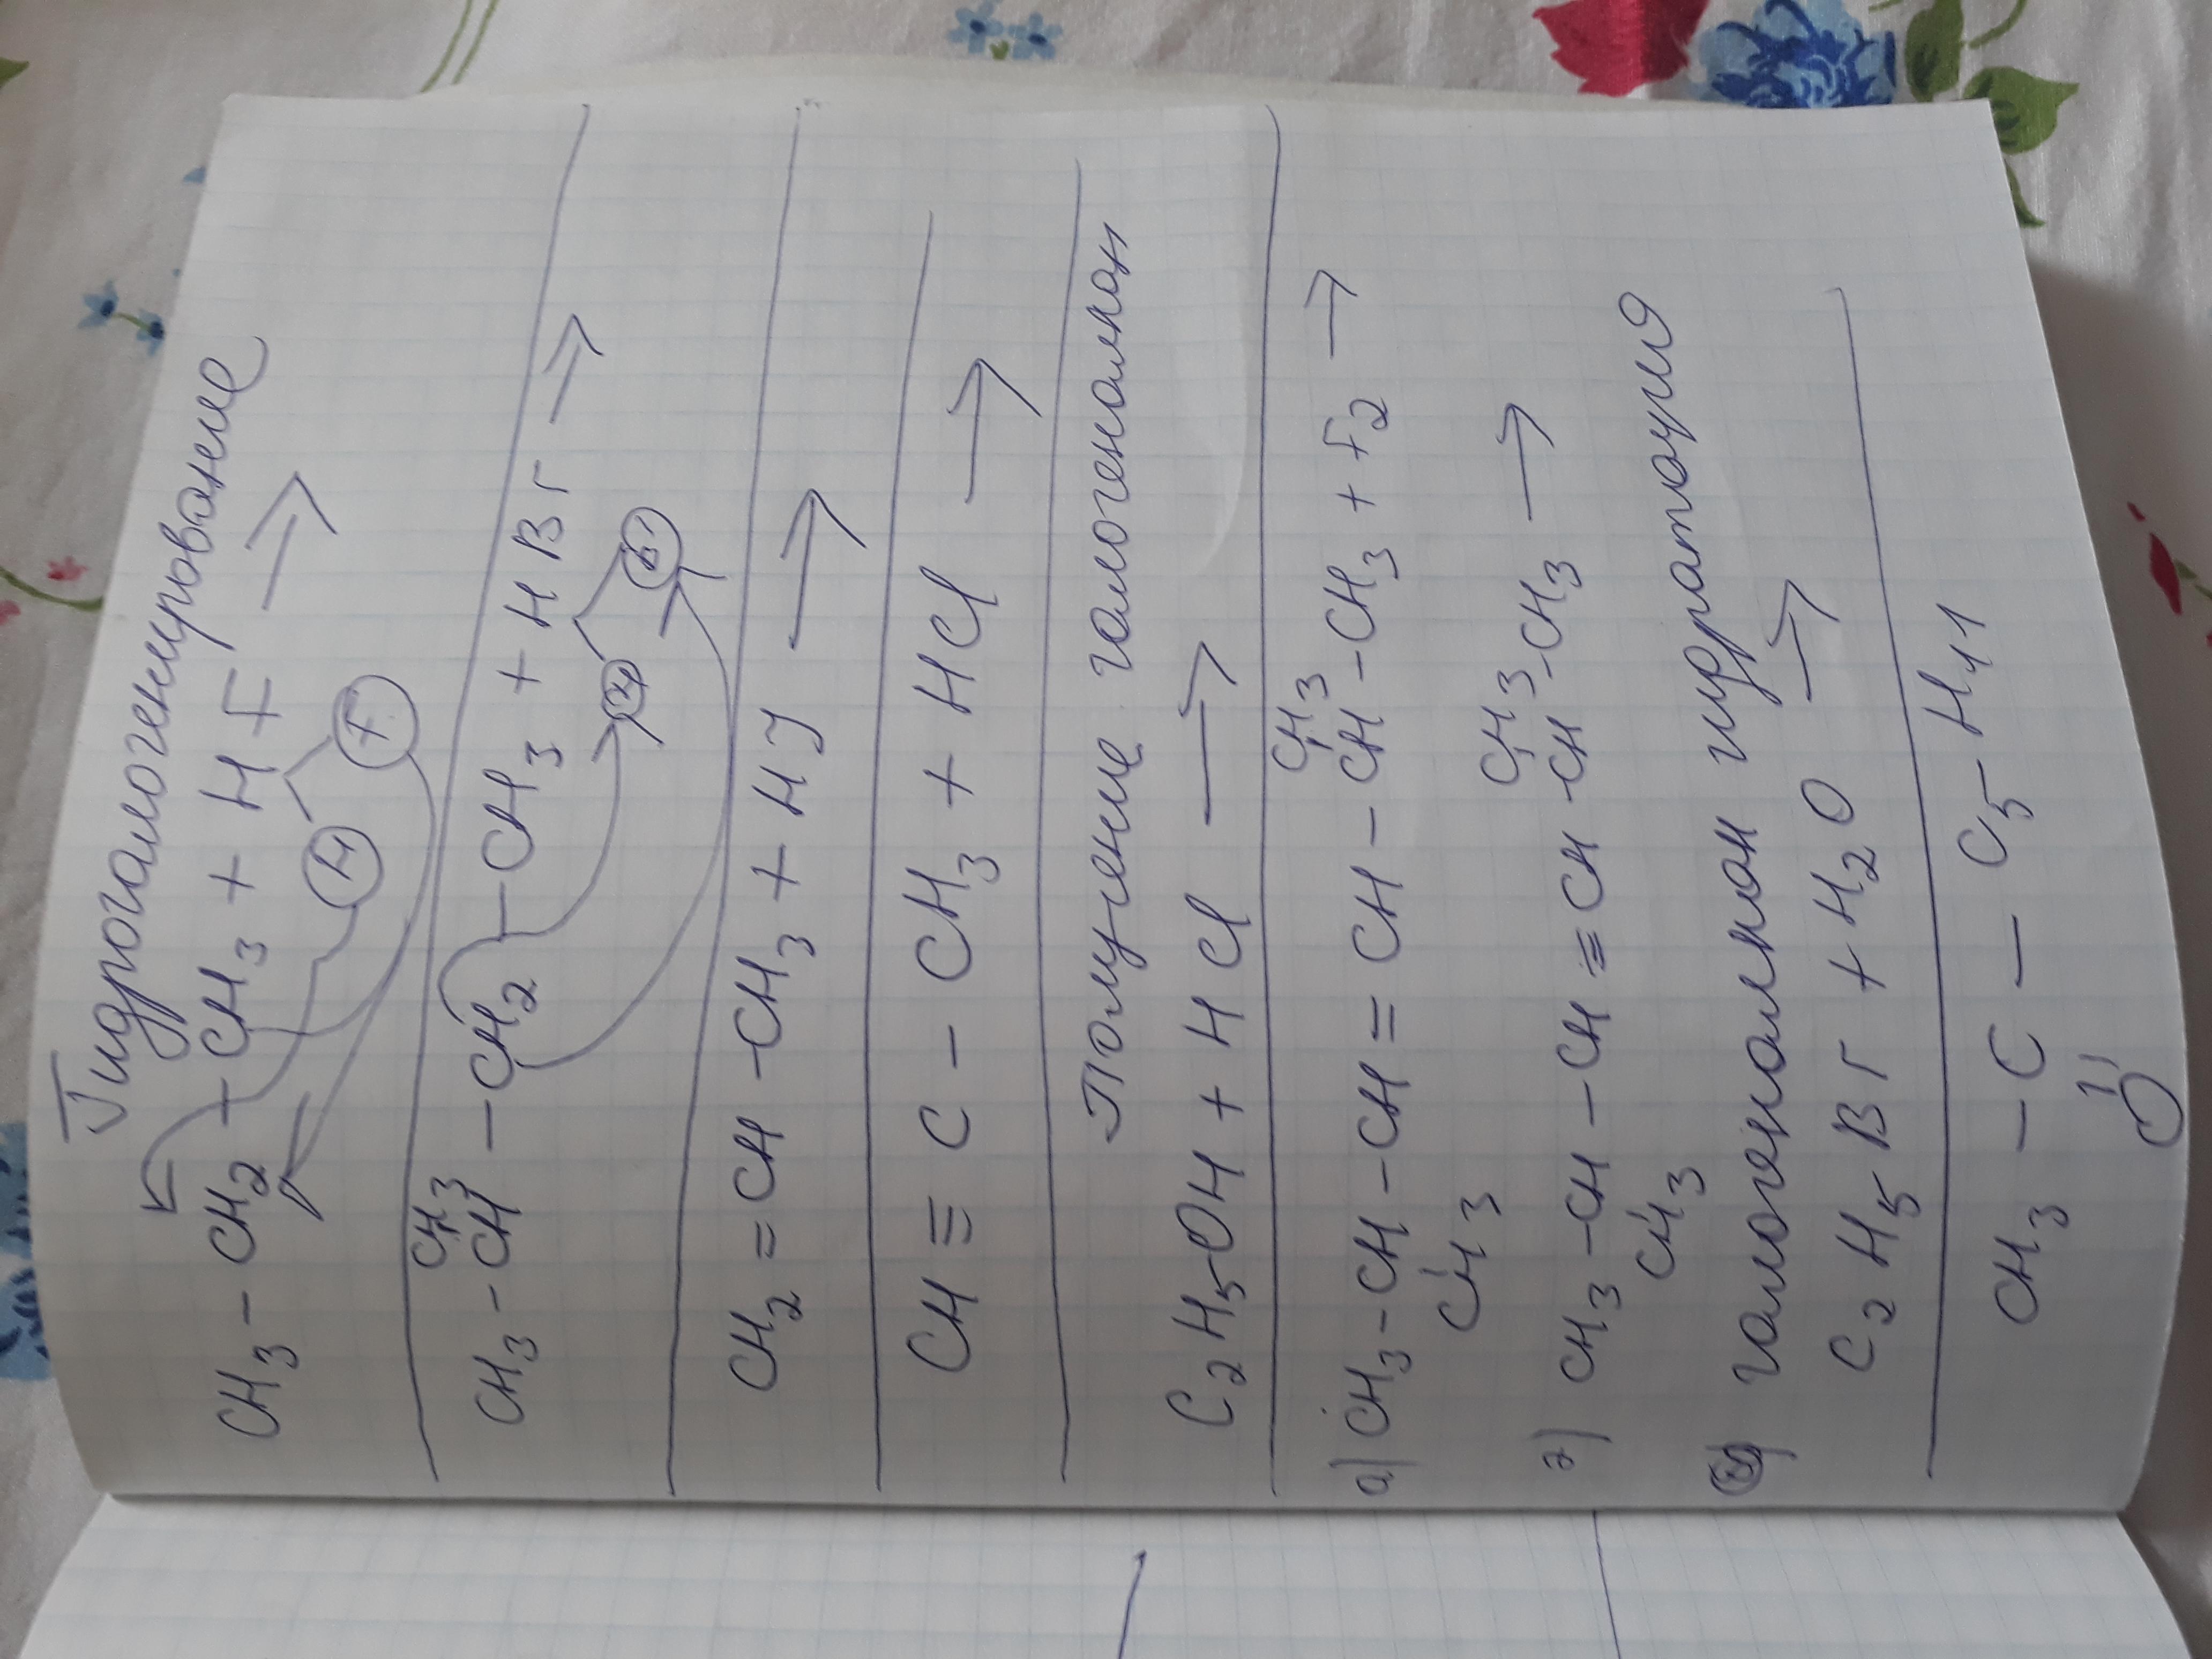 Гидрогалогенирование
CH3 - CH2 - CH3 + HF →
H F
CH3
CH3 - CH - CH2 - CH3 + HBr →
Br
CH2 = CH - CH3 + HJ →
CH ≡ C - CH3 + HCl →
Получение галогеналкан
C2H5OH + HCl →
CH3
а) CH3 - CH - CH = CH - CH - CH3 + F2 →
CH3
CH3
CH3 - CH - CH = CH - CH - CH3 →
CH3
галогеналкан гидратация
C2H5Br + H2O →
CH3 - C - C5 - H11
O